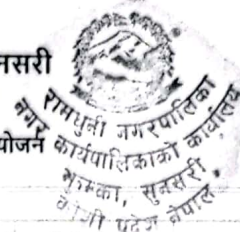 नसरी
योजन
रामधुनी नगरपालिका
नगर कार्यपालिकाको कार्यालय
भुम्का, सुनसरी
कोशी प्रदेश नेपाल